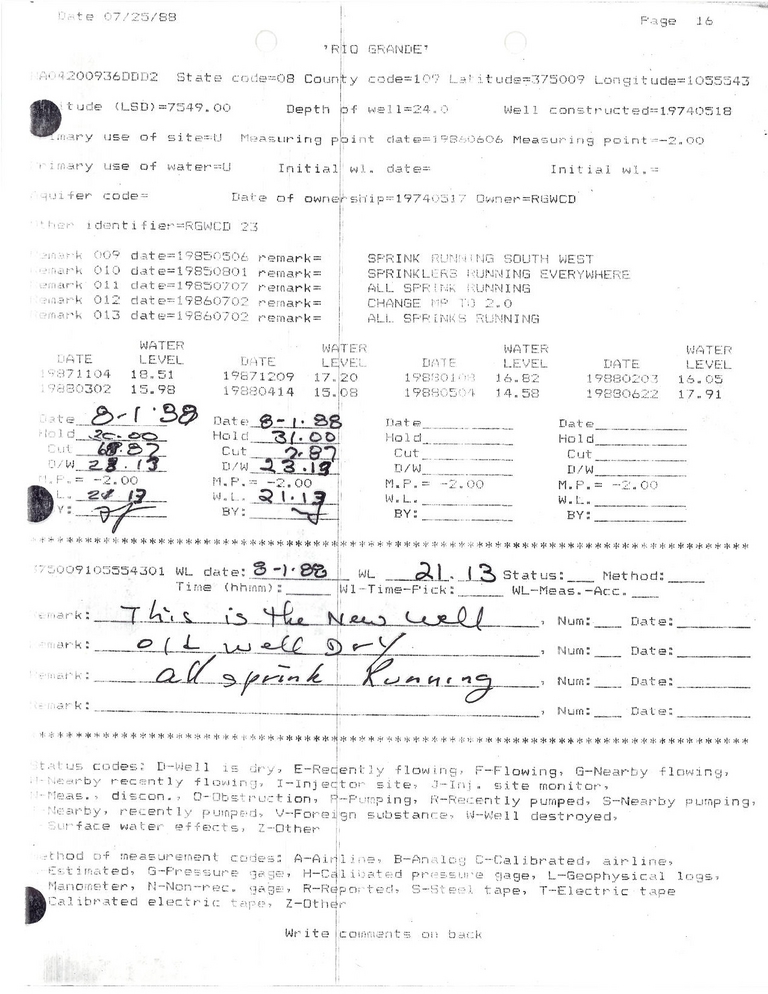 Date 07/25/88 Page 16
'RIO GRANDE'
NA04200936DDD2 State code=08 County code=109 Latitude=375009 Longitude=1055543
itude (LSD)=7549.00 Depth of well=24.0 Well constructed=19740518
imary use of site=U Measuring point date=19860606 Measuring point=-2.00
Primary use of water=U Initial wl. date= Initial wl.=
Aquifer code= Date of ownership=19740517 Owner=RGWCD
Other identifier=RGWCD 23
Remark 009 date=19850506 remark= SPRINK RUNNING SOUTH WEST
Remark 010 date=19850801 remark= SPRINKLERS RUNNING EVERYWHERE
Remark 011 date=19850707 remark= ALL SPRINK RUNNING
Remark 012 date=19860702 remark= CHANGE MP TO 2.0
Remark 013 date=19860702 remark= ALL SPRINKS RUNNING
WATER WATER WATER WATER
DATE LEVEL DATE LEVEL DATE LEVEL DATE LEVEL
19871104 18.51 19871209 17.20 19880108 16.82 19880203 16.05
19880302 15.98 19880414 15.08 19880504 14.58 19880622 17.91
Date 8-1-88 Date 8-1-88 Date Date
Hold 20.00 Hold 31.00 Hold Hold
Cut Cut 7.87 Cut Cut
D/W 23.13 D/W 23.13 D/W D/W
M.P.= -2.00 M.P.= -2.00 M.P.= -2.00 M.P.= -2.00
L. 21 13 W.L. 21.13 W.L. W.L.
Y: BY: BY: BY:
******************************************************************************
375009105554301 WL date: 8-1-88 WL 21.13 Status: Method:
Time (hhmm): Wl-Time-Pick: WL-Meas.-Acc.
emark: This is the New well, Num: Date:
emark: old well Dry, Num: Date:
Remark: all sprink Running, Num: Date:
Remark: , Num: Date:
******************************************************************************
Status codes: D-Well is dry, E-Recently flowing, F-Flowing, G-Nearby flowing,
H-Nearby recently flowing, I-Injector site, J-Inj. site monitor,
N-Meas., discon., O-Obstruction, P-Pumping, R-Recently pumped, S-Nearby pumping,
-Nearby, recently pumped, V-Foreign substance, W-Well destroyed,
-Surface water effects, Z-Other
ethod of measurement codes: A-Airline, B-Analog C-Calibrated, airline,
-Estimated, G-Pressure gage, H-Calibated pressure gage, L-Geophysical logs,
Manometer, N-Non-rec. gage, R-Reported, S-Steel tape, T-Electric tape
Calibrated electric tape, Z-Other
Write comments on back